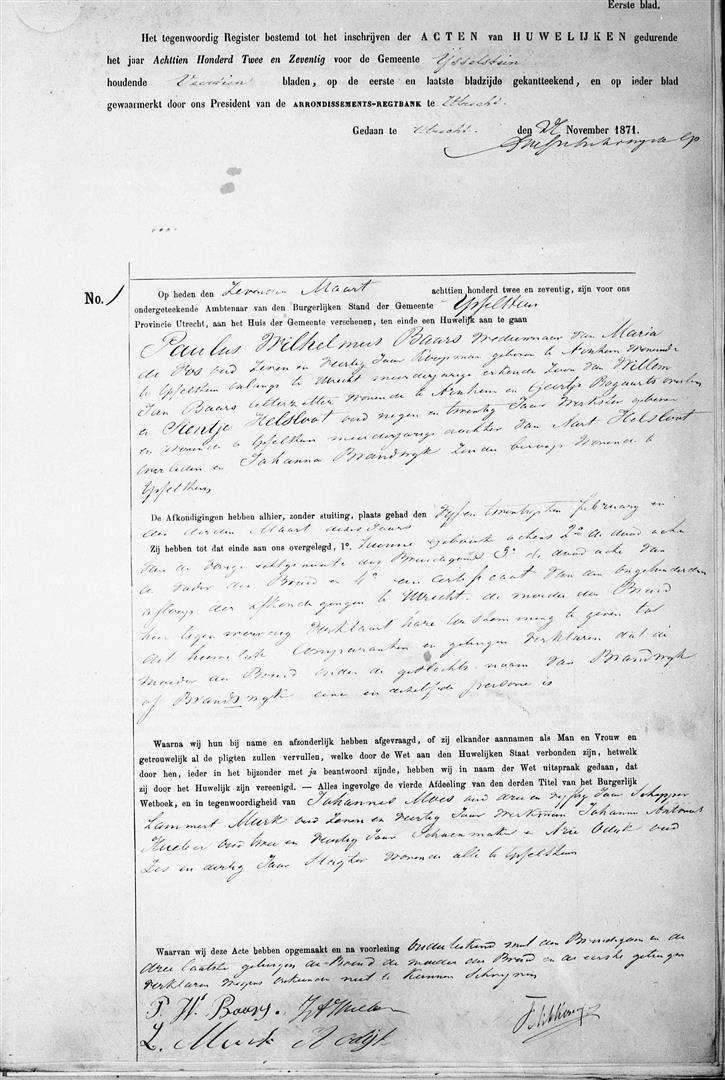 Eerste blad.
Het tegenwoordig Register bestemd tot het inschrijven der ACTEN van HUWELIJKEN gedurende
het jaar Achttien Honderd Twee en Zeventig voor de Gemeente IJsselstein
houdende Veertien bladen, op de eerste en laatste bladzijde gekantteekend, en op ieder blad
gewaarmerkt door ons President van de ARRONDISSEMENTS-REGTBANK te Utrecht.
Gedaan te Utrecht. den November 1871.
No. 1
Op heden den Zevenden Maart achttien honderd twee en zeventig, zijn voor ons
ondergeteekende Ambtenaar van den Burgerlijken Stand der Gemeente IJsselstein
Provincie Utrecht, aan het Huis der Gemeente verschenen, ten einde een Huwelijk aan te gaan
Paulus Wilhelmus Baars Weduwnaar van Maria
de Vos oud Zeven en Veertig Jaar Koopman geboren te Arnhem Wonende
te IJsselstein onlangs te Utrecht meerderjarige erkende Zoon van Willem
Jan Baars letterzetter wonende te Arnhem en Geertje Bogaarts overleden
en Sientje Helsloot oud negen en twintig Jaar Werkster geboren
en wonende te IJsselstein meerderjarige dochter van Aart Helsloot
overleden en Johanna Brandwyk Zonder beroep Wonende te
IJsselstein
De Afkondigingen hebben alhier, zonder stuiting, plaats gehad den Vijf en twintigsten february en
den derden Maart dezes Jaars
Zij hebben tot dat einde aan ons overgelegd, 1°. Hunne geboorte actens 2° de dood acte
van de vorige echtgenoote des Bruidegoms 3° de dood acte van
de vader der Bruid en 4° een certificaat van den ongehinderden
afloop der afkondigingen te Utrecht. de moeder der Bruid
hier tegenwoordig verklaart hare toestemming te geven tot
dit huwelijk Comparanten en getuigen verklaren dat de
moeder der Bruid onder de geslachts naam van Brandwyk
of Brandswyk eene en dezelfde persoon is
Waarna wij hun bij name en afzonderlijk hebben afgevraagd, of zij elkander aannamen als Man en Vrouw en
getrouwelijk al de pligten zullen vervullen, welke door de Wet aan den Huwelijken Staat verbonden zijn, hetwelk
door hen, ieder in het bijzonder met ja beantwoord zijnde, hebben wij in naam der Wet uitspraak gedaan, dat
zij door het Huwelijk zijn vereenigd. — Alles ingevolge de vierde Afdeeling van den derden Titel van het Burgerlijk
Wetboek, en in tegenwoordigheid van Johannes Moes oud drie en vijftig Jaar Schipper
Lammert Murk oud Zeven en veertig Jaar Werkman Johannes Antonius
oud twee en Veertig Jaar Schoenmaker en Arie Odijk oud
Zes en dertig Jaar Slagter wonende alle te IJsselstein
Waarvan wij deze Acte hebben opgemaakt en na voorlezing Onderteekend met den Bruidegom en de
drie laatste getuigen de Bruid de moeder der Bruid en de eerste getuigen
verklaren niet te kunnen Schrijven
P. W. Baars.
L. Murk A Odijk